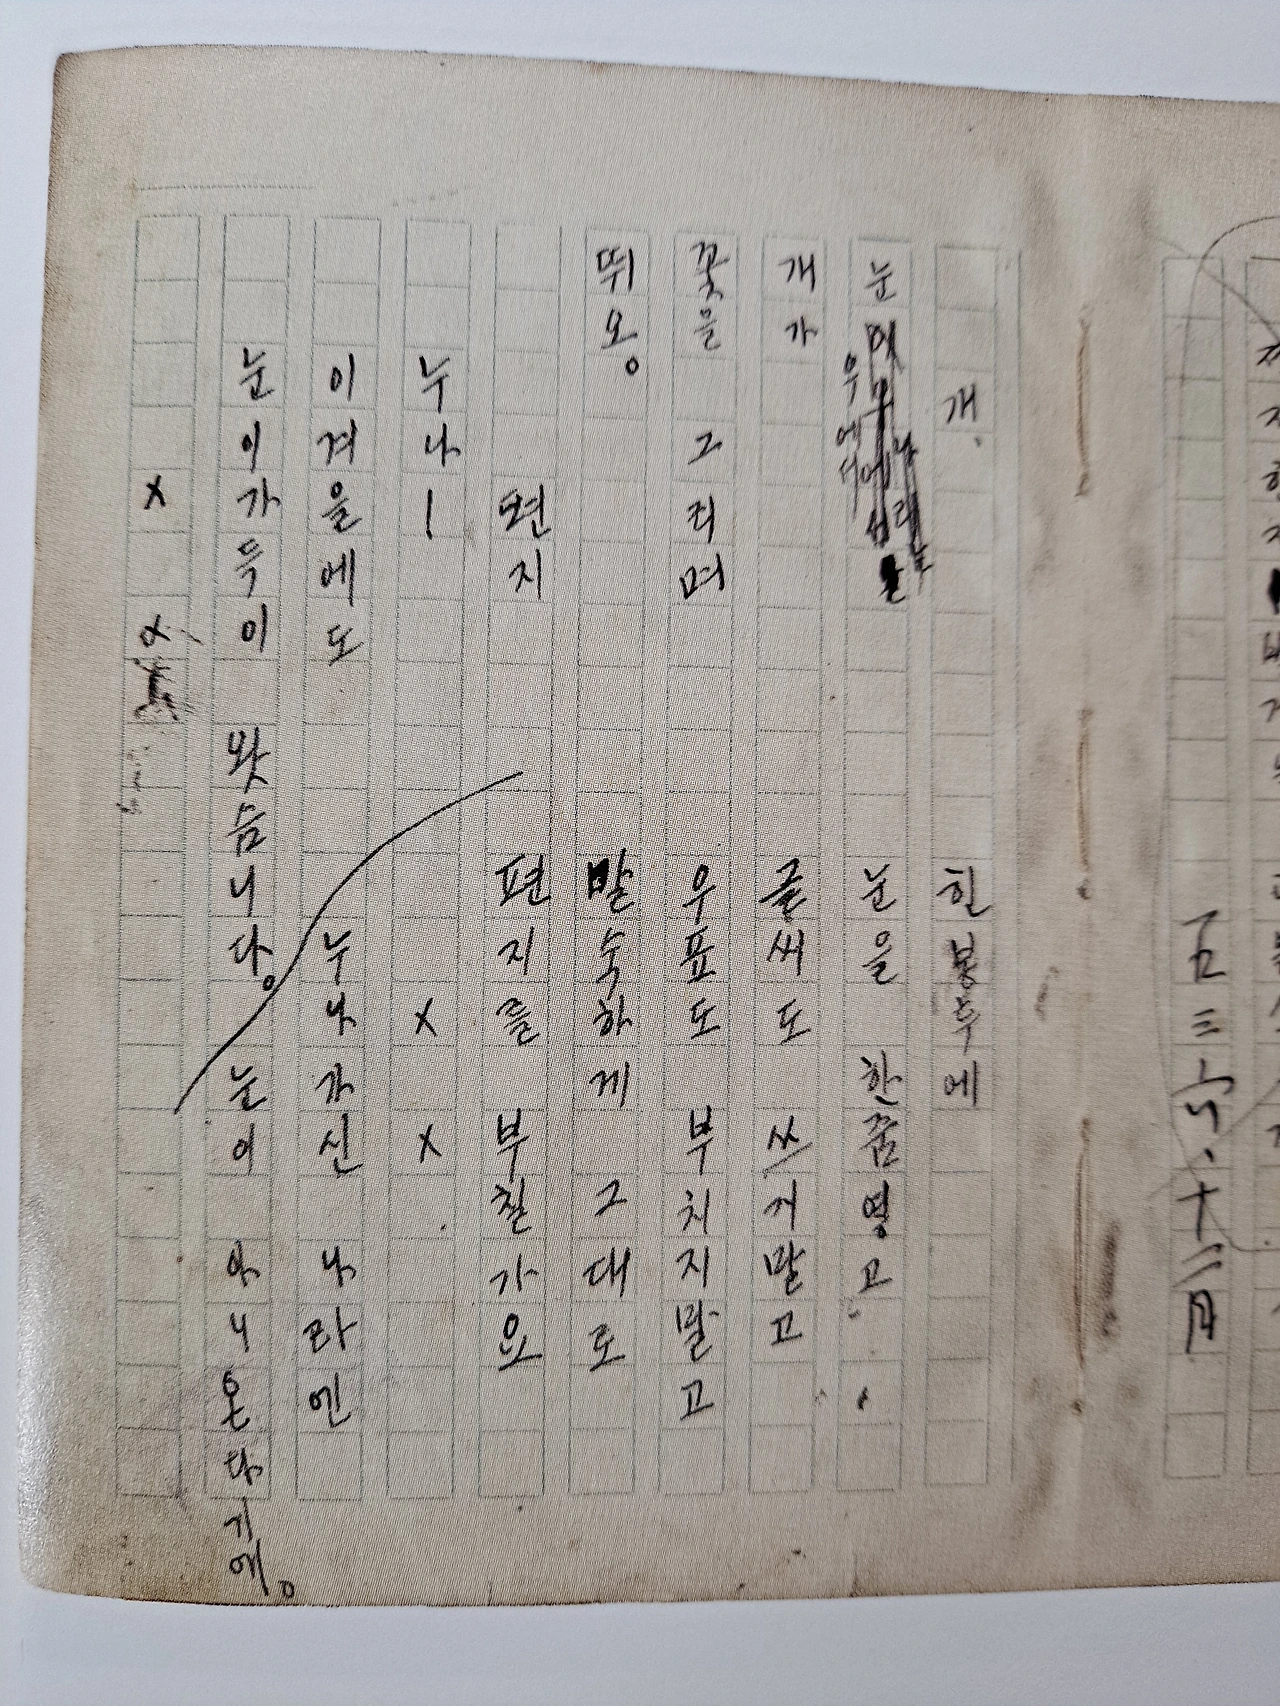 一九三六、十二月
개.
눈 우에서
개가
꽃을 그리며
뛰오。
편지
누나!
이겨을에도
눈이가득이 왓슴니다。
x x
힌봉투에
눈을 한줌옇고
글씨도 쓰지말고
우표도 부치지말고
말숙하게 그대로
편지를 부칠가요
x x
누나가신 나라엔
눈이 아니온다기에。